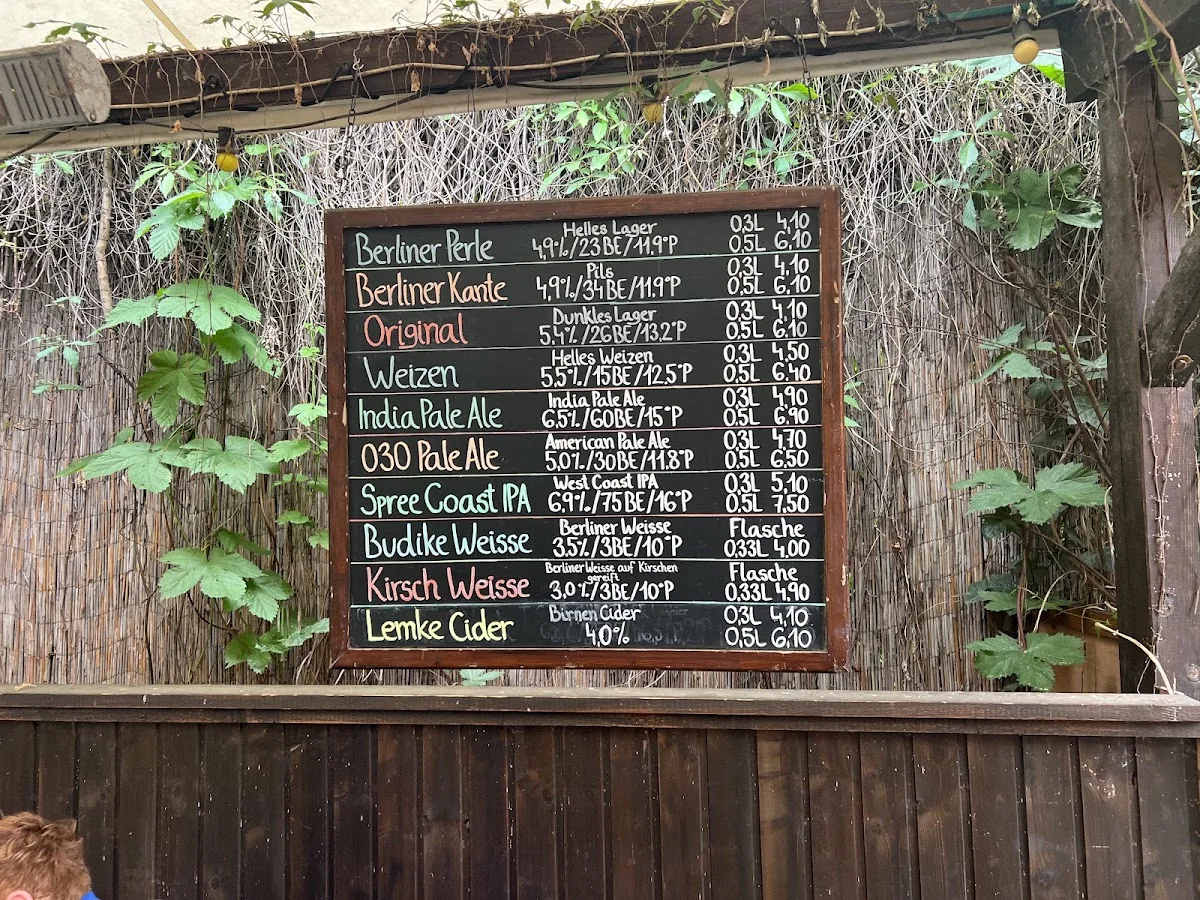 Berliner Perle
Helles Lager
4,9%/23BE/11,9°P
0,3L 4,10
0,5L 6,10
Berliner Kante
Pils
4,9%/34BE/11,9°P
0,3L 4,10
0,5L 6,10
Original
Dunkles Lager
5,4%/26BE/13,2°P
0,3L 4,10
0,5L 6,10
Weizen
Helles Weizen
5,5%/15BE/12,5°P
0,3L 4,50
0,5L 6,40
India Pale Ale
India Pale Ale
6,5%/60BE/15°P
0,3L 4,90
0,5L 6,90
030 Pale Ale
American Pale Ale
5,0%/30BE/11,8°P
0,3L 4,70
0,5L 6,50
Spree Coast IPA
West Coast IPA
6,9%/75BE/16°P
0,3L 5,10
0,5L 7,50
Budike Weisse
Berliner Weisse
3,5%/3BE/10°P
Flasche
0,33L 4,00
Kirsch Weisse
Berliner Weisse auf Kirschen
gereift
3,0%/3BE/10°P
Flasche
0,33L 4,90
Lemke Cider
Birnen Cider
4,0%
0,3L 4,10
0,5L 6,10